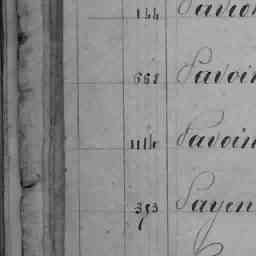 144 Savio
668 Savoin
1116 Savoin
393 Sayen